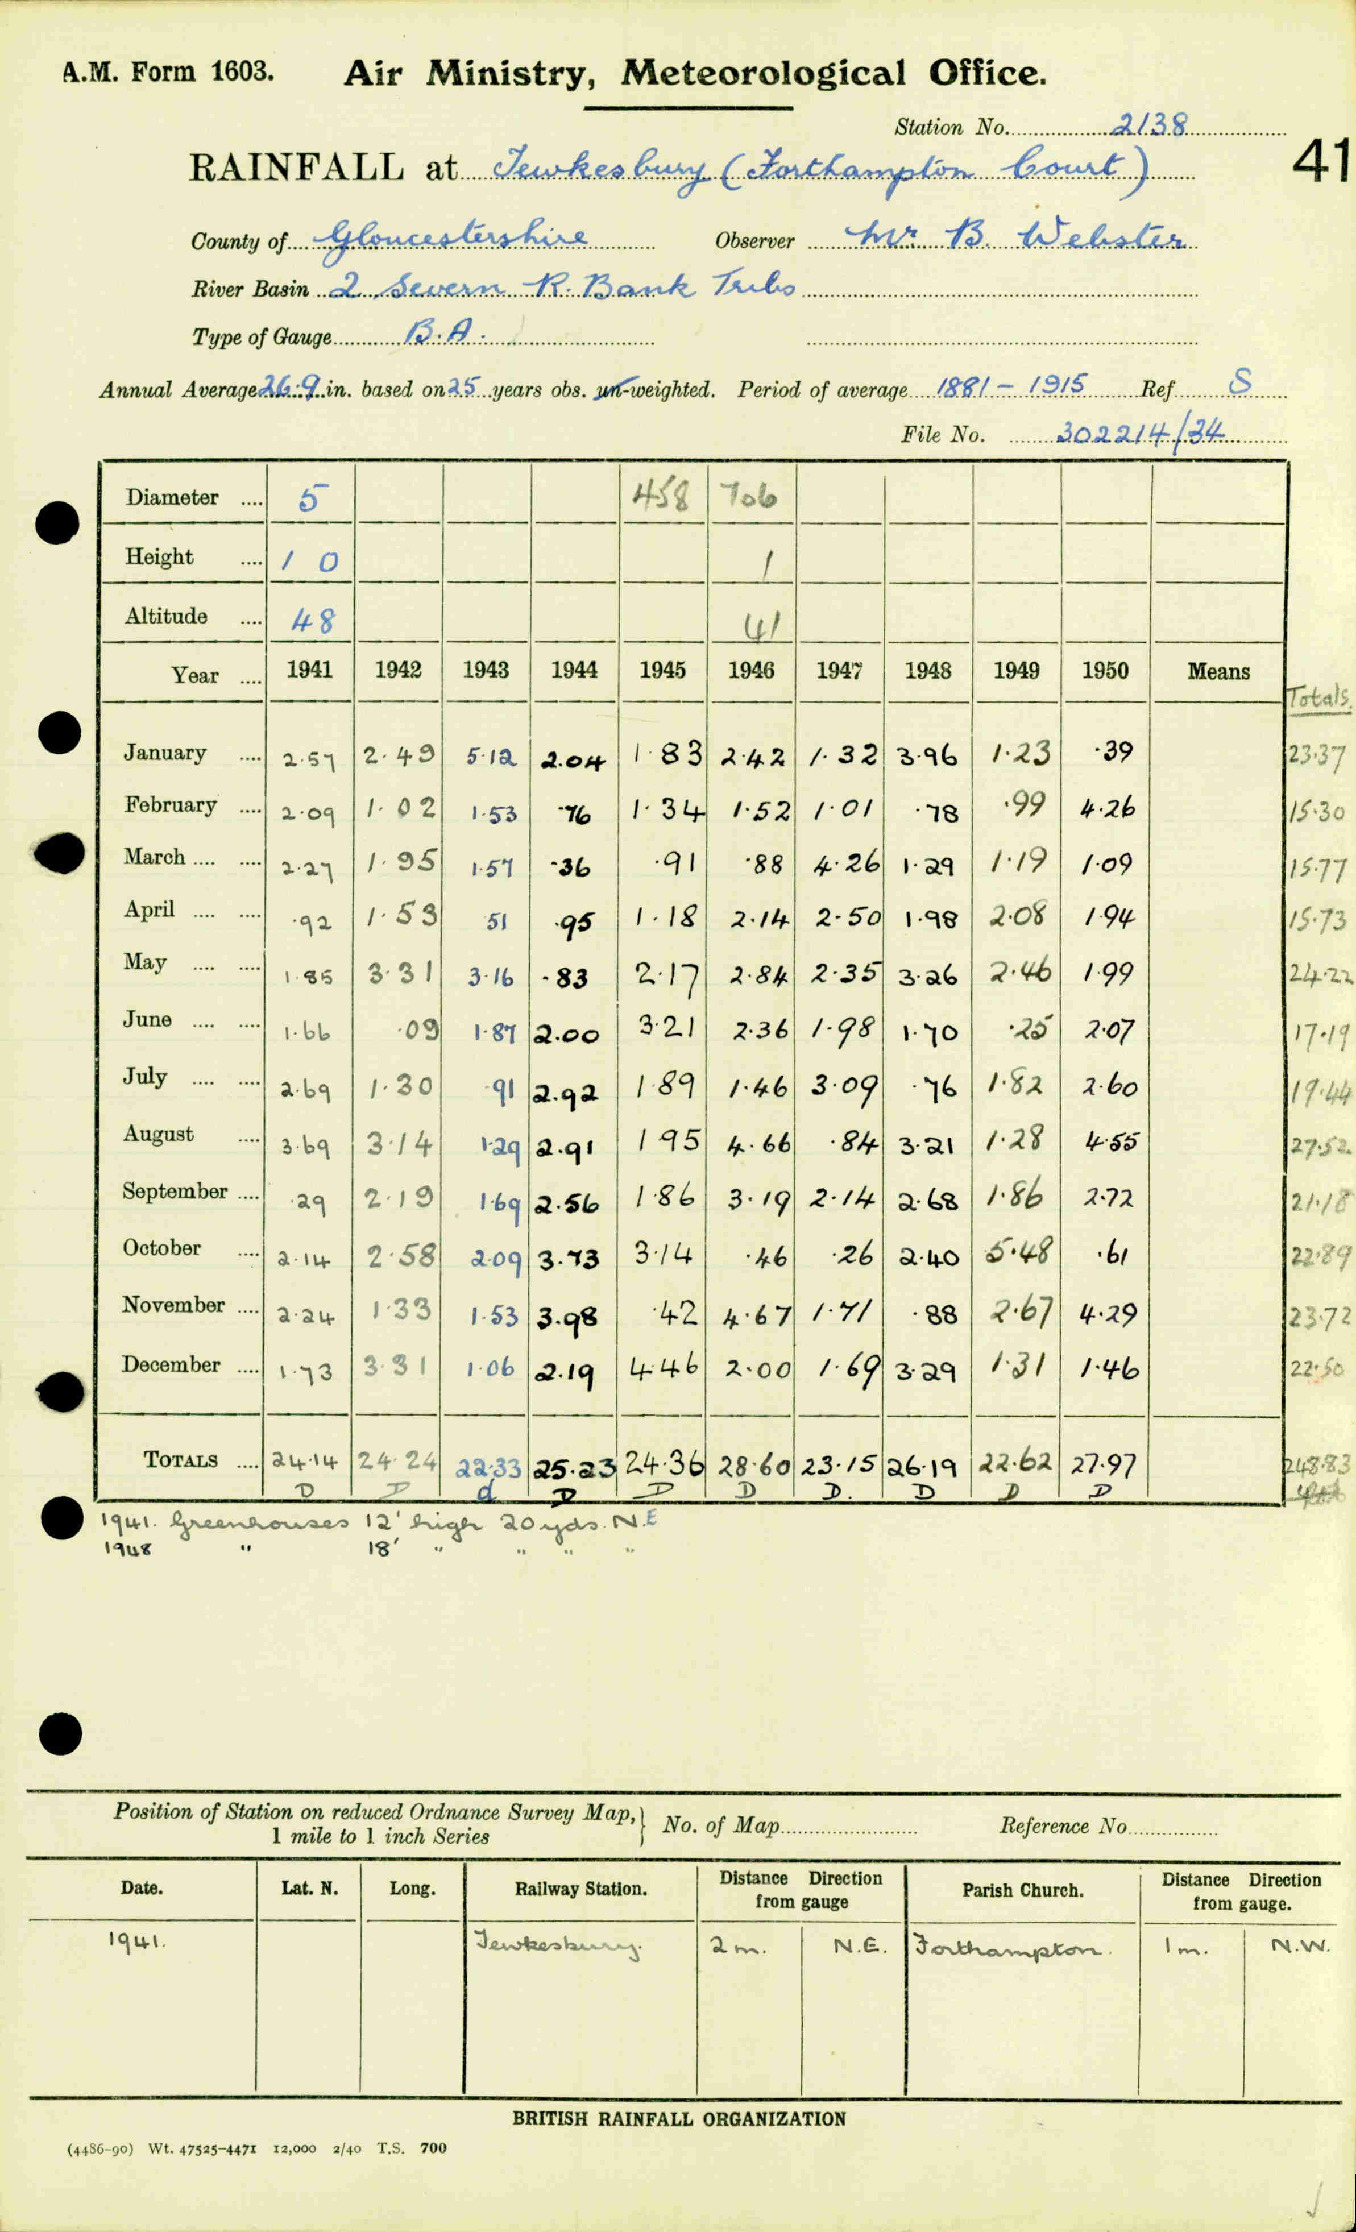 A.M. Form 1603. Air Ministry, Meteorological Office.
Station No. 2138
41
RAINFALL at Tewkesbury (Forthampton Court)
County of Gloucestershire Observer Mr B. Webster
River Basin 2 Severn R. Bank Tribs
Type of Gauge B.A.
Annual Average 26.9 in. based on 25 years obs. un-weighted. Period of average 1881 - 1915 Ref S
File No. 302214/34
Diameter .... 5 458 706
Height .... 1 0 1
Altitude .... 48 41
Year .... 1941 1942 1943 1944 1945 1946 1947 1948 1949 1950 Means Totals.
January .... 2.57 2.49 5.12 2.04 1.83 2.42 1.32 3.96 1.23 .39 23.37
February .... 2.09 1.02 1.53 .76 1.34 1.52 1.01 .78 .99 4.26 15.30
March .... .... 2.27 1.95 1.57 .36 .91 .88 4.26 1.29 1.19 1.09 15.77
April .... .... .92 1.53 51 .95 1.18 2.14 2.50 1.98 2.08 1.94 15.73
May .... .... 1.85 3.31 3.16 .83 2.17 2.84 2.35 3.26 2.46 1.99 24.22
June .... .... 1.66 .09 1.87 2.00 3.21 2.36 1.98 1.70 .25 2.07 17.19
July .... .... 2.69 1.30 .91 2.92 1.89 1.46 3.09 .76 1.82 2.60 19.44
August .... 3.69 3.14 1.29 2.91 1.95 4.66 .84 3.21 1.28 4.55 27.52
September .... .29 2.19 1.69 2.56 1.86 3.19 2.14 2.68 1.86 2.72 21.18
October .... 2.14 2.58 2.09 3.73 3.14 .46 .26 2.40 5.48 .61 22.89
November .... 2.24 1.33 1.53 3.98 .42 4.67 1.71 .88 2.67 4.29 23.72
December .... 1.73 3.31 1.06 2.19 4.46 2.00 1.69 3.29 1.31 1.46 22.50
TOTALS .... 24.14 24.24 22.33 25.23 24.36 28.60 23.15 26.19 22.62 27.97 248.83
D D d D D D D. D D D
1941. Greenhouses 12' high 20 yds. N.E
1948 " 18' " " " "
Position of Station on reduced Ordnance Survey Map, } No. of Map Reference No.
1 mile to 1 inch Series
Date. Lat. N. Long. Railway Station. Distance Direction from gauge Parish Church. Distance Direction from gauge.
1941. Tewkesbury. 2 m. N.E. Forthampton. 1 m. N.W.
BRITISH RAINFALL ORGANIZATION
(4486-90) Wt. 47525-4471 12,000 2/40 T.S. 700